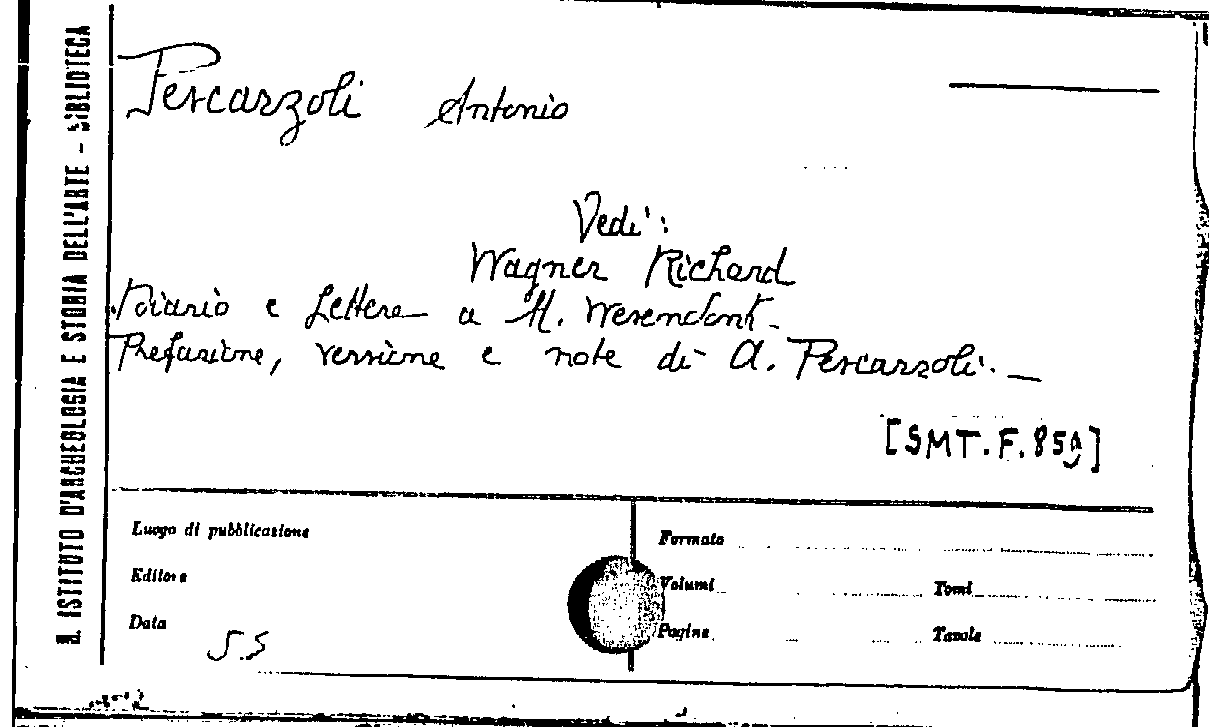 R. ISTITUTO D'ARCHEOLOGIA E STORIA DELL'ARTE - BIBLIOTECA
Pescarzoli Antonio
Vedi:
Wagner Richard
Diario e Lettere a M. Wesendonk.
Prefazione, versione e note di A. Pescarzoli. _
[SMT.F.859]
Luogo di pubblicazione
Editore
Data
S.S
Formato
Volumi
Tomi
Pagine
Tavole